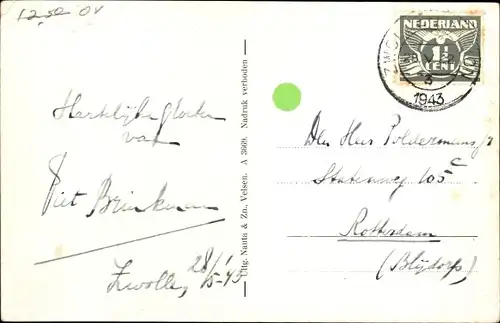 12.50 OV
Hartelijke groeten
van
Piet Brinkman
Zwolle, 28/5-'43
Uitg. Nauta & Zn. Velsen. A 3669. Nadruk verboden
NEDERLAND
1½
CENT
ZWOLLE
1943
Den Heer Poldermans Jr
Statenweg 105 c
Rotterdam
(Blijdorp)